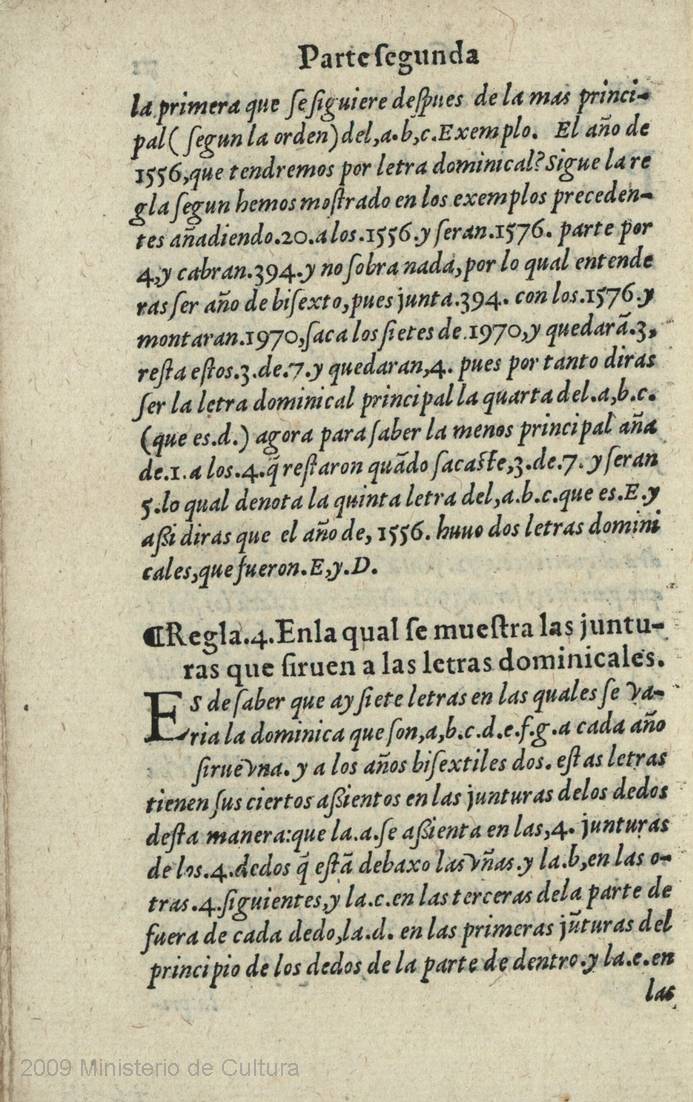 Parte ſegunda
la primera que ſe ſiguiere deſpues de la mas princi-
pal( ſegun la orden)del,a.b,c.Exemplo. El año de
1556,que tendremos por letra dominical?Sigue la re
gla ſegun hemos moſtrado en los exemplos preceden-
tes añadiendo.20.a los.1556.y ſeran.1576. parte por
4,y cabran.394.y no ſobra nada,por lo qual entende
ras ſer año de biſexto,pues junta.394. con los.1576.y
montaran.1970,ſaca los ſietes de.1970,y quedarã.3,
reſta eſtos.3.de.7.y quedaran,4. pues por tanto diras
ſer la letra dominical principal la quarta del.a,b.c.
(que es.d.) agora para ſaber la menos principal aña
de.1.a los.4.q̃ reſtaron quãdo ſacaſte,3.de.7. y ſeran
5.lo qual denota la quinta letra del,a.b.c.que es.E.y
aßi diras que el año de, 1556. huuo dos letras domini
cales,que fueron.E,y.D.
¶Regla.4.Enla qual ſe mueſtra las juntu-
ras que ſiruen a las letras dominicales.
ES de ſaber que ay ſiete letras en las quales ſe va-
ria la dominica que ſon,a,b.c.d.e.f.g.a cada año
ſirue vna. y a los años biſextiles dos. eſtas letras
tienen ſus ciertos aßientos en las junturas delos dedos
deſta manera:que la.a.ſe aßienta en las,4. junturas
de los.4.dedos q̃ eſtã debaxo las vñas.y la.b,en las o-
tras.4.ſiguientes,y la.c.en las terceras dela parte de
fuera de cada dedo,la.d. en las primeras jũturas del
principio de los dedos de la parte de dentro.y la.e.en
las
2009 Ministerio de Cultura